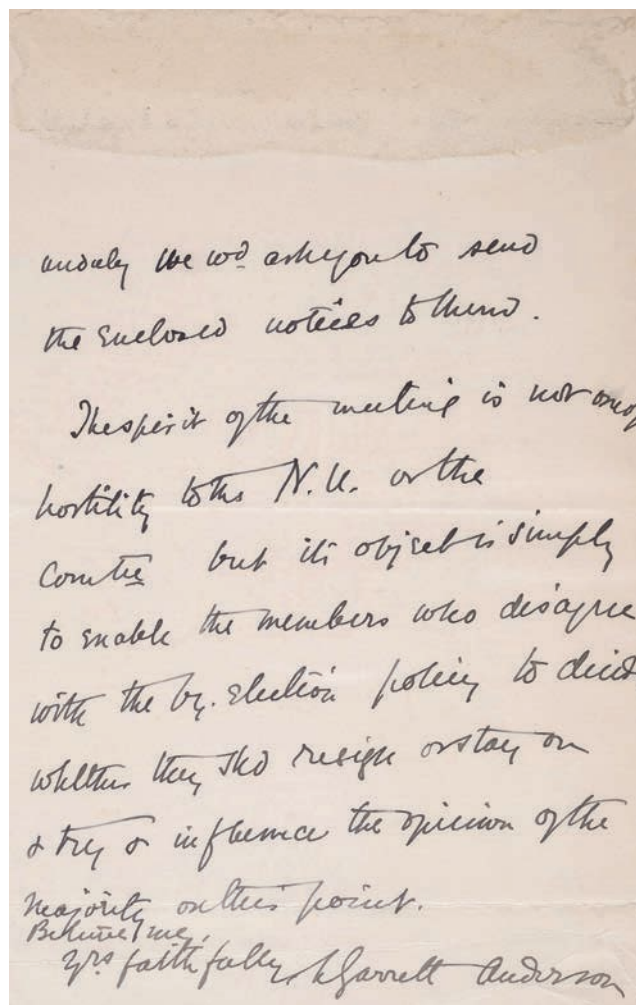 unduly we wd ask you to send
the enclosed notices to them.
The spirit of the meeting is not one of
hostility to the N.U. or the
Comtee but its object is simply
to enable the members who disagree
with the by-election policy to decid
whether they shd resign or stay on
& try & influence the opinion of the
majority on this point.
Believe me,
Yrs faithfully, L Garrett Anderson